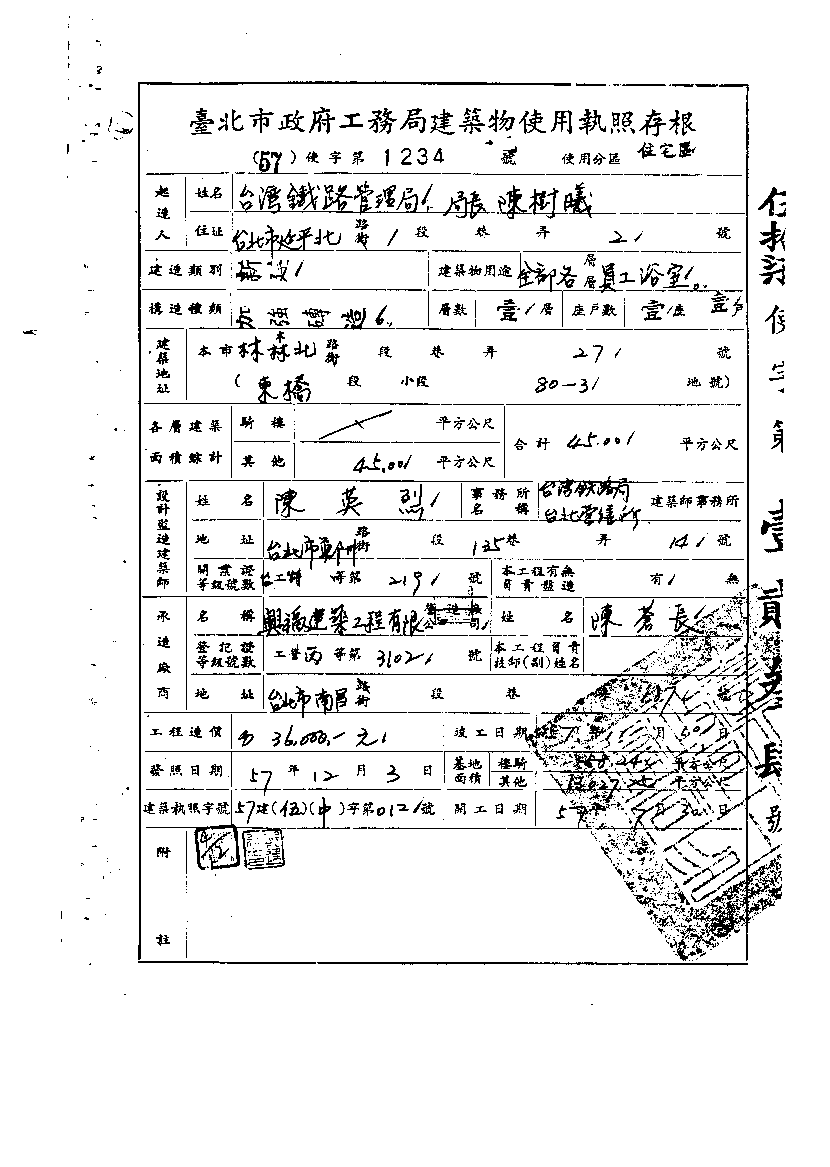 臺北市政府工務局建築物使用執照存根
(57)使字第1234號 使用分區 住宅區
起造人 姓名 台湾鐵路管理局 局長 陳樹曦
住址 台北市延平北路街1段 巷 弄 21 號
建造類別 建築物用途 全部各層層員工浴室
構造種類 加強磚造 層數 壹層 座戶數 壹座 壹戶
建築地址 本市林森北路街 段 巷 弄 271 號
(東橋 段 小段 80-31 地號)
各層建築面積綜計 騎樓 平方公尺 合計 45.00 平方公尺
其他 45.00 平方公尺
設計監造建築師 姓名 陳英烈 事務所名稱 台湾铁路局台北 建築師事務所
地址 台北市 路街 段 135巷 弄 14 號
開業證等級號數 等第 219 號 本工程有無負責監造 有 無
承造廠商 名稱 興福建築工程有限公司 姓名 陳蒼長
登記證等級號數 工營丙等第3102號 本工程負責技師(副)姓名
地址 台北市南昌路街 段 巷 號
工程造價 36,000.-元 竣工日期 57年 月30日
發照日期 57年12月3日 基地面積 樓騎 平方公尺
其他 平方公尺
建築執照字號 57建(伍)(中)字第012號 開工日期 57年7月30日
附註
伍拾柒使字第壹貳叁肆號